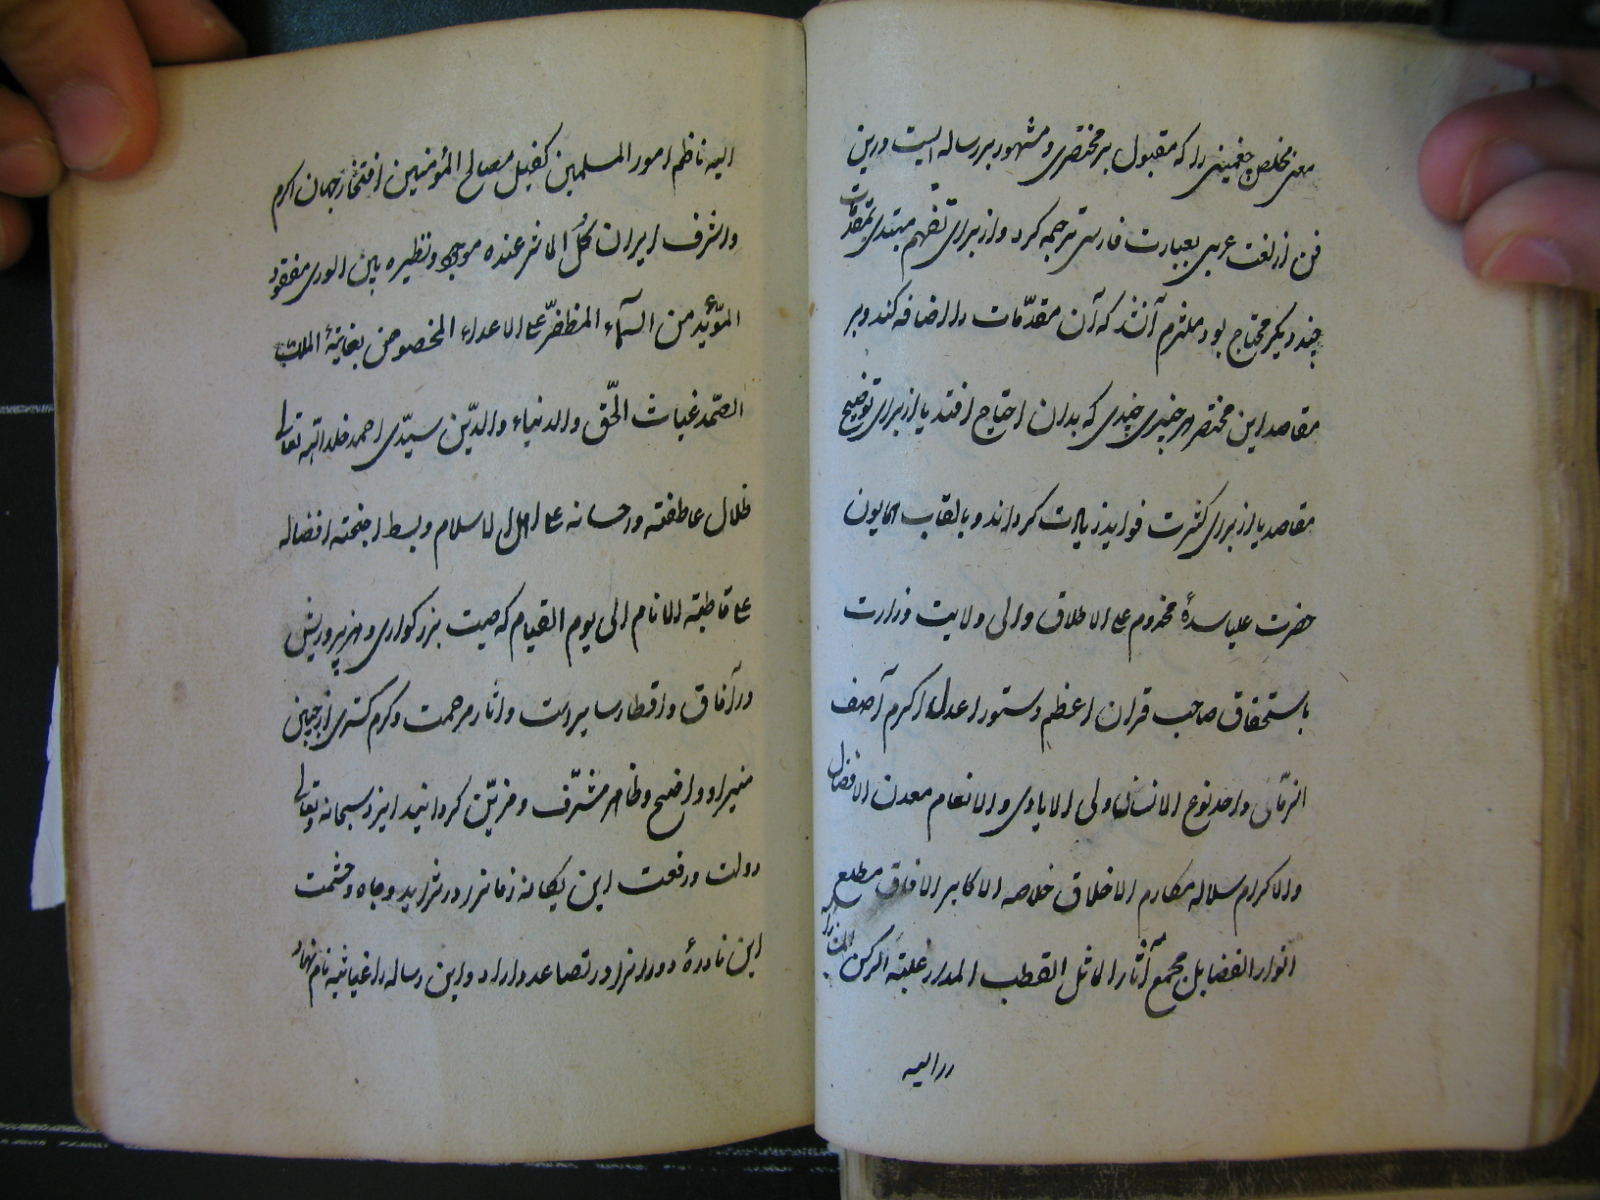 معنی ملخص چغمینی را که مقبول هر مختصری و مشهور هر رساله ایست درین
فن از لغت عربی بعبارت فارسی ترجمه کرد و از برای تفهم مبتدی بمقدمات
چند دیکر محتاج بود ملتزم آن شد که آن مقدّمات را اضافه کند و بر
مقاصد این مختصر هر چیزی چیزی که بدان احتیاج افتد یا از برای توضیح
مقاصد یا از برای کثرت فواید زیادت کرداند و بالقاب همایون
حضرت علیا سدهٔ مخدوم علی الاطلاق والی ولایت وزارت
باستحقاق صاحب قران اعظم دستور اعدل اکرم آصف
الزمانی واحد نوع الانسان اولی الایادی والانعام معدن الافضال
والاکرام سلاله مکارم الاخلاق خلاصه الاکابر الافاق مطلع
انوار الفضایل مجمع آثار الاماثل القطب المدار علیه
الیه ناظم امور المسلمین کفیل مصالح المؤمنین افتخار جهان اکرم
واشرف ایران کلّ المآثر عنده موجود ونظیره بین الوری مفقود
المؤیّد من السمآء المظفّر علی الاعداء المخصوص بعنایة الملک
الصّمد غیاث الحّق والدنیاء والدیّن سیدّی احمد خلد الله تعالی
ظلال عاطفته واحسانه علی اهل الاسلام وبسط اجنحته افضاله
علی قاطبة الانام الی یوم القیام که صیت بزرکواری و هنر پروریش
در آفاق واقطار سایرست واثار مرحمت وکرم کستری از جبین
منیر او واضح وظاهر مشّرف ومزیّن کردانید ایزد سبحانه وتعالی
دولت ورفعت این یکانه زمانرا در تزاید وجاه وحشمت
این نادرهٔ دورانرا در تصاعد داراد واین رساله را غیاثیه نام نهاد